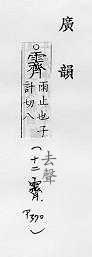 廣韻
○霽 雨止也子
計切八
去聲
(十二霽.
P370)